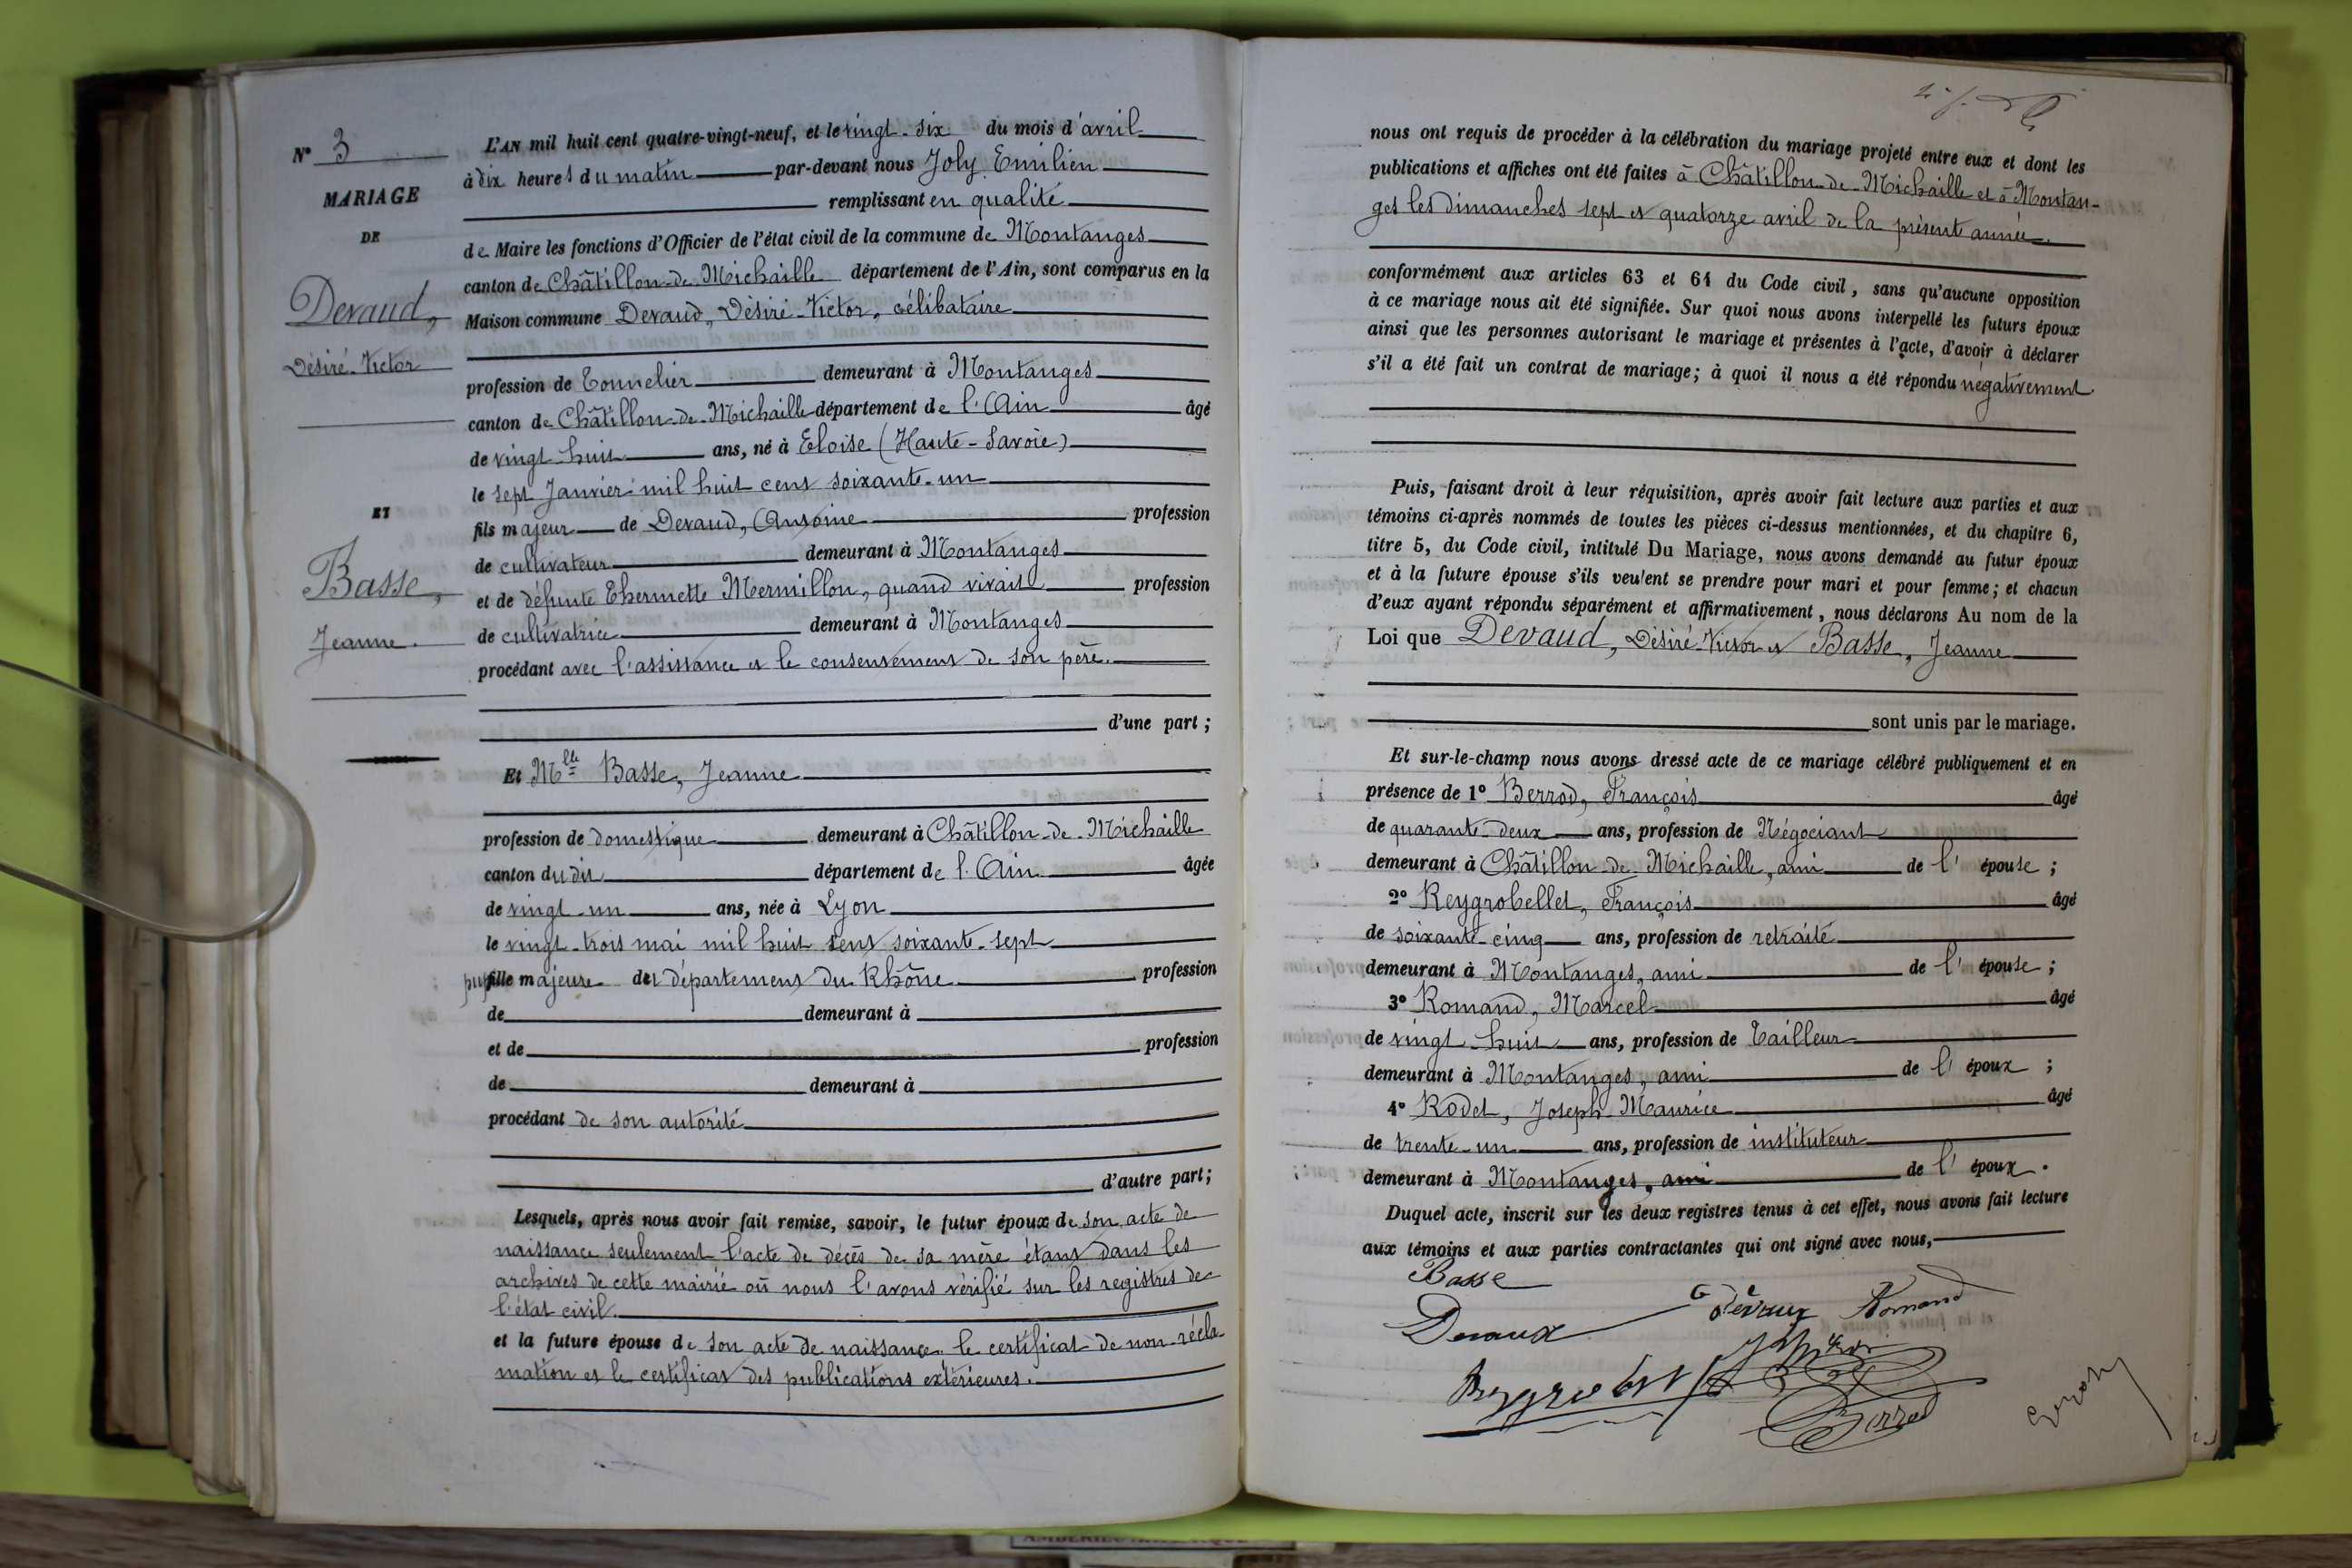 N° 3
MARIAGE
DE
Devaud,
Désiré-Victor
ET
Basse,
Jeanne.
L'AN mil huit cent quatre-vingt-neuf, et le vingt-six du mois d'avril
à dix heures du matin par-devant nous Joly Emilien
remplissant en qualité
de Maire les fonctions d'Officier de l'état civil de la commune de Montanges
canton de Châtillon-de-Michaille département de l'Ain, sont comparus en la
Maison commune Devaud, Désiré-Victor, célibataire
profession de Tonnelier demeurant à Montanges
canton de Châtillon-de-Michaille département de l'Ain âgé
de vingt-huit ans, né à Eloise (Haute-Savoie)
le sept Janvier mil huit cent soixante-un
fils majeur de Devaud, Antoine profession
de cultivateur demeurant à Montanges
et de défunte Thermette Mermillon, quand vivait profession
de cultivatrice demeurant à Montanges
procédant avec l'assistance et le consentement de son père.
d'une part;
Et Mlle Basse, Jeanne
profession de domestique demeurant à Châtillon-de-Michaille
canton du dit département de l'Ain âgée
de vingt-un ans, née à Lyon
le vingt-trois mai mil huit cent soixante-sept
pupille majeure du département du Rhône profession
de demeurant à
et de profession
de demeurant à
procédant de son autorité
d'autre part;
Lesquels, après nous avoir fait remise, savoir, le futur époux de son acte de
naissance seulement l'acte de décès de sa mère étant dans les
archives de cette mairie où nous l'avons vérifié sur les registres de
l'état civil.
et la future épouse de son acte de naissance le certificat de non-récla-
mation et le certificat des publications extérieures.
nous ont requis de procéder à la célébration du mariage projeté entre eux et dont les
publications et affiches ont été faites à Châtillon-de-Michaille et à Montan-
ges les dimanches sept et quatorze avril de la présente année.
conformément aux articles 63 et 64 du Code civil, sans qu'aucune opposition
à ce mariage nous ait été signifiée. Sur quoi nous avons interpellé les futurs époux
ainsi que les personnes autorisant le mariage et présentes à l'acte, d'avoir à déclarer
s'il a été fait un contrat de mariage; à quoi il nous a été répondu négativement.
Puis, faisant droit à leur réquisition, après avoir fait lecture aux parties et aux
témoins ci-après nommés de toutes les pièces ci-dessus mentionnées, et du chapitre 6,
titre 5, du Code civil, intitulé Du Mariage, nous avons demandé au futur époux
et à la future épouse s'ils veulent se prendre pour mari et pour femme; et chacun
d'eux ayant répondu séparément et affirmativement, nous déclarons Au nom de la
Loi que Devaud, Désiré-Victor et Basse, Jeanne
sont unis par le mariage.
Et sur-le-champ nous avons dressé acte de ce mariage célébré publiquement et en
présence de 1° Berrod, François âgé
de quarante-deux ans, profession de Négociant
demeurant à Châtillon-de-Michaille, ami de l'épouse;
2° Reygrobellet, François âgé
de soixante-cinq ans, profession de retraité
demeurant à Montanges, ami de l'épouse;
3° Romand, Marcel âgé
de vingt-huit ans, profession de Tailleur
demeurant à Montanges, ami de l'époux;
4° Rodet, Joseph-Maurice âgé
de trente-un ans, profession de instituteur
demeurant à Montanges, ami de l'époux.
Duquel acte, inscrit sur les deux registres tenus à cet effet, nous avons fait lecture
aux témoins et aux parties contractantes qui ont signé avec nous,
Basse
Romand
Devaux
Berrod